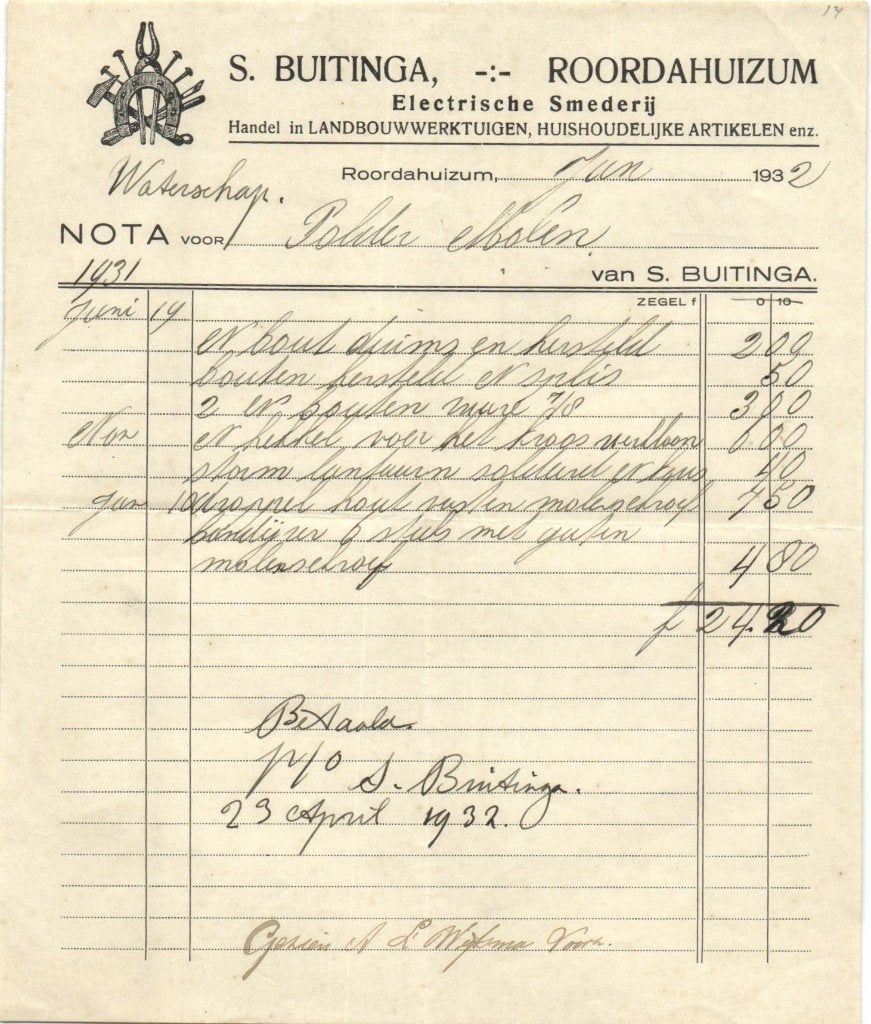 14
S. BUITINGA, -:- ROORDAHUIZUM
Electrische Smederij
Handel in LANDBOUWWERKTUIGEN, HUISHOUDELIJKE ARTIKELEN enz.
Waterschap.
Roordahuizum, Jan 1932
NOTA VOOR Polder Molen
1931
van S. BUITINGA.
ZEGEL f 0 10
Juni 19
N bout duims en hersteld 2 00
bouten hersteld N splis 50
2 N bouten 7/8 3 00
Nov N hekkel voer het kroos 00
storm lantaarn soldeerd N 40
Jan 10 hout 4 50
6 stuks met
molenschroef 4 80
f 24.20
Betaald.
p/o S. Buitinga.
23 April 1932.
Gezien A L Wijtsma Voorz.